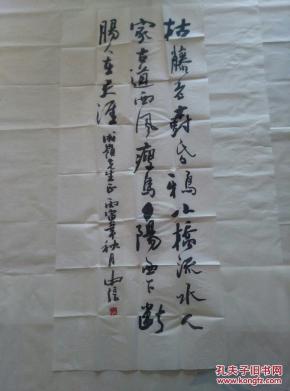 枯藤老树昏鸦小桥流水人
家古道西风瘦马夕阳西下断
肠人在天涯 先生正 丙寅年秋月
孔夫子旧书网